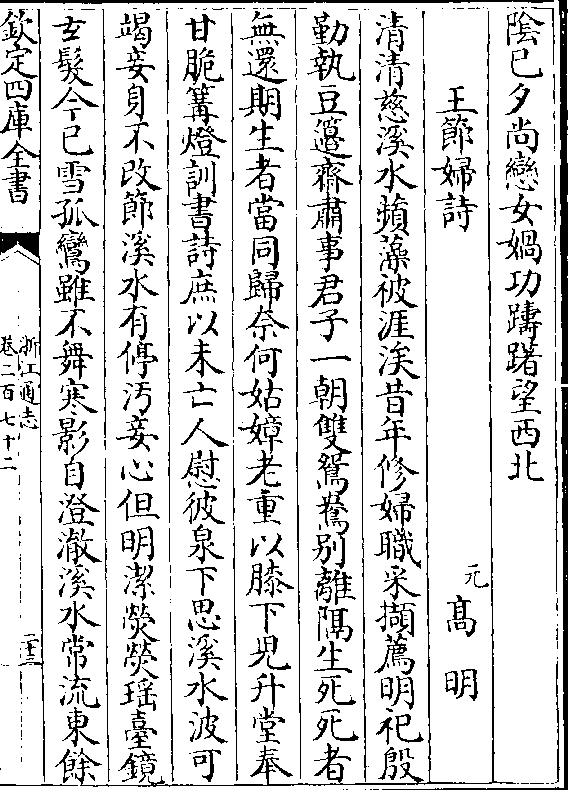 陰已夕尚戀女媧功躊躇望西北
王節婦詩
元
高明
清清慈溪水蘋藻被涯涘昔年修婦職采擷薦明祀殷
勤執豆籩齋肅事君子一朝雙鴛鴦别離隔生死死者
無還期生者當同歸奈何姑嫜老重以膝下兒升堂奉
甘脆篝燈訓書詩庶以未亡人慰彼泉下思溪水波可
竭妾身不改節溪水有停汚妾心但明潔熒熒瑶臺鏡
玄髮今已雪孤鸞雖不舞寒影自澄澈溪水常流東餘
欽定四庫全書
浙江通志
卷二百七十二
二十三